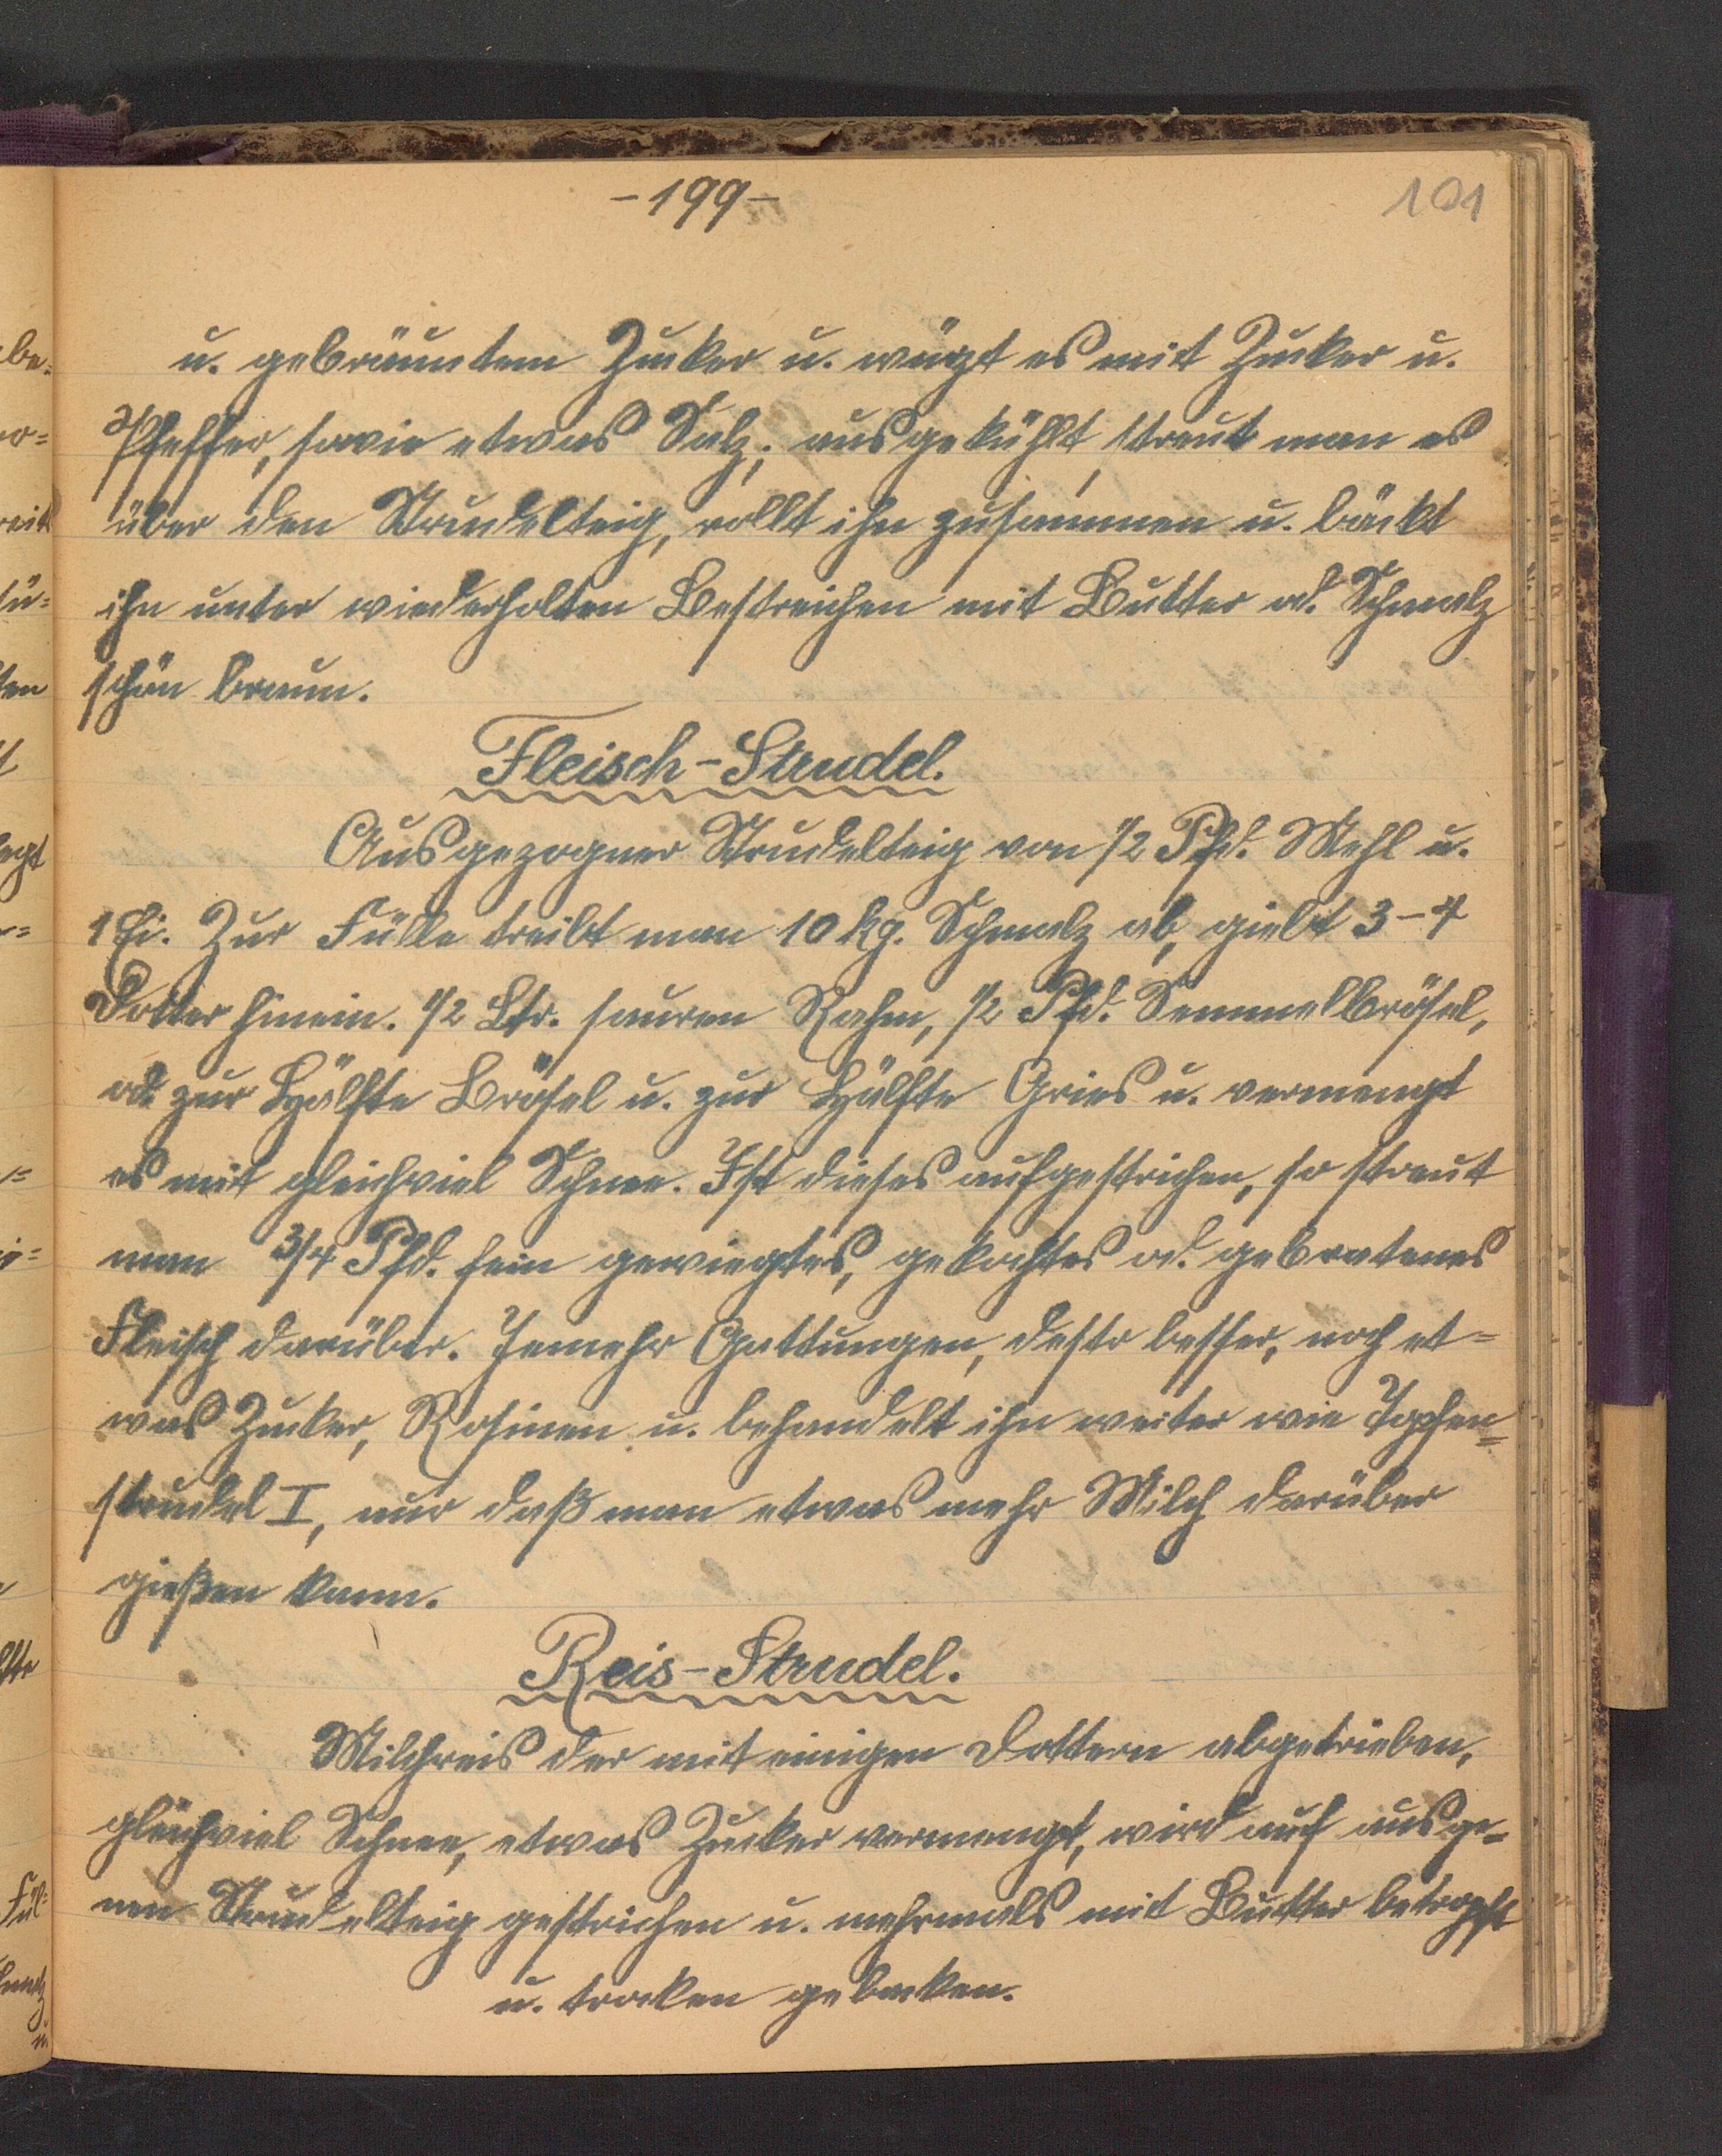 -199-
101
u. gebräuntem Zucker u. würzt es mit Zucker u.
Pfeffer, sowie etwas Salz; ausgekühlt, streut man es
über den Strudelteig, rollt ihn zusammen u. bäckt
ihn unter wiederholten Bestreichen mit Butter od. Schmalz
schön braun.
Fleisch-Strudel.
Ausgezogner Strudelteig von 1/2 Pfd. Mehl u.
1 Ei. Zur Fülle treibt man 10 kg. Schmalz ab, giebt 3-4
Dotter hinein. 1/2 Ltr. sauren Rahm, 1/2 Pfd. Semmelbrösel,
od. zur Hälfte Brösel u. zur Hälfte Gries u. vermengt
es mit gleichviel Schnee. Ist dieses aufgestrichen, so streut
man 3/4 Pfd. fein gewiegtes, gekochtes od. gebratenes
Fleisch darüber. Jemehr Gattungen, desto besser, noch et=
was Zucker, Rosinen u. behandelt ihn weiter wie Topfen=
strudel I, nur daß man etwas mehr Milch darüber
gießen kann.
Reis-Strudel.
Milchreis der mit einigen Dottern abgetrieben,
gleichviel Schnee, etwas Zucker vermengt, wird auf ausge=
nen Strudelteig gestrichen u. mehrmals mit Butter betropft
u. trocken gebacken.